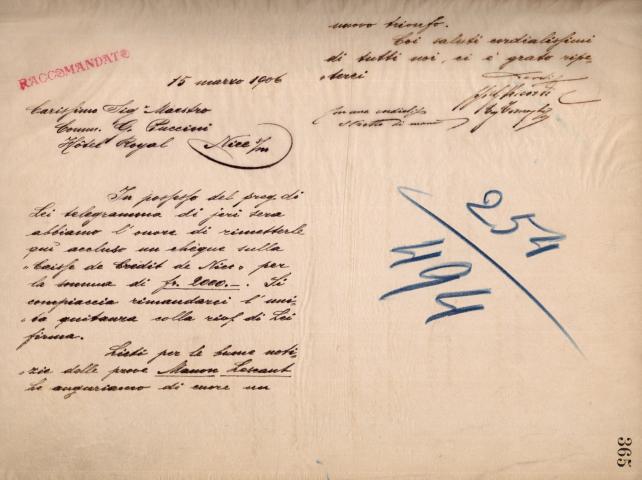 RACCOMANDATO
15 marzo 1906
Carissimo Sigr Maestro
Comm. G. Puccini
Hôtel Royal Nice
In possesso del preg. di
Lei telegramma di jeri sera
abbiamo l'onore di rimetterle
quì accluso un chèque sulla
"Caisse de Crédit de Nice" per
la somma di fr. 2000.-. Si
compiaccia rimandarci l'uni-
ta quitanza colla riv/ di Lei
firma.
Lieti per le buone noti-
zie delle prove Manon Lescaut
Le auguriamo di cuore un
nuovo trionfo.
Coi saluti cordialissimi
di tutti noi, ci è grato ripe-
terci
Devmi
G. Ricordi
stretta di mano
254
494
365